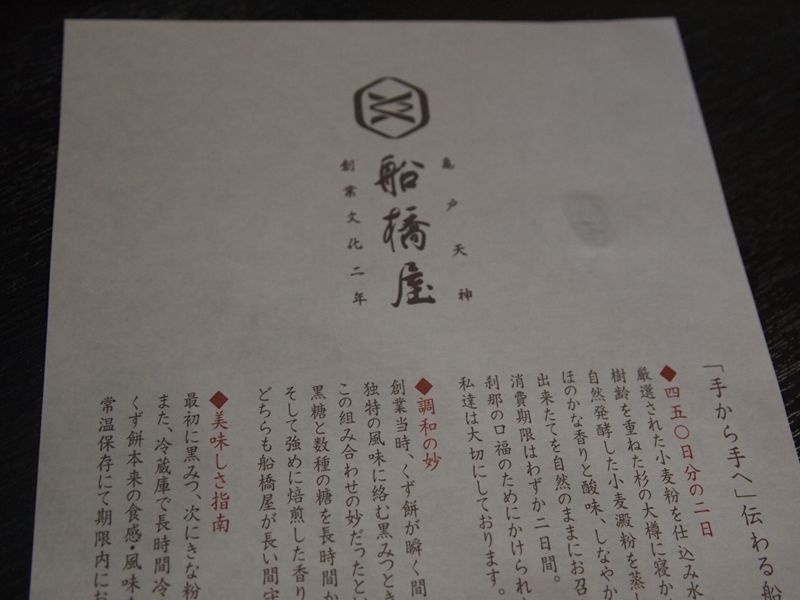 亀戸天神
船橋屋
創業文化二年
「手から手へ」伝わる船
◆四五〇日分の二日
厳選された小麦粉を仕込み水
樹齢を重ねた杉の大樽に寝か
自然発酵した小麦澱粉を蒸し
ほのかな香りと酸味、しなやか
出来たてを自然のままにお召
消費期限はわずか二日間。
刹那の口福のためにかけられ
私達は大切にしております。
◆調和の妙
創業当時、くず餅が瞬く間
独特の風味に絡む黒みつとき
この組み合わせの妙だったとい
黒糖と数種の糖を長時間か
そして強めに焙煎した香り
どちらも船橋屋が長い間守
◆美味しさ指南
最初に黒みつ、次にきな粉
また、冷蔵庫で長時間冷
くず餅本来の食感・風味
常温保存にて期限内にお